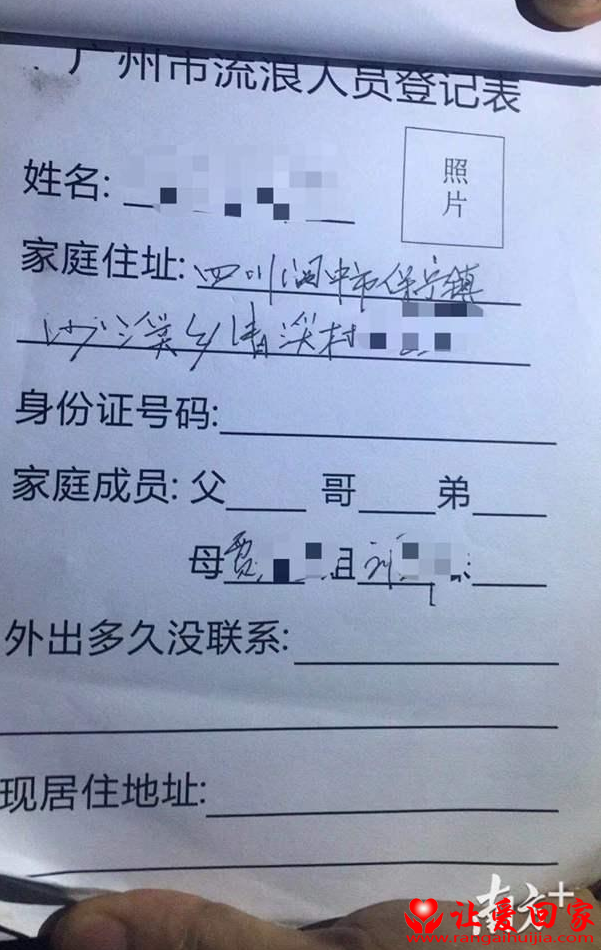 广州市流浪人员登记表
照
片
姓名:
家庭住址: 四川阆中市保宁镇
沙溪乡清溪村
身份证号码:
家庭成员: 父 哥 弟
母 贾
外出多久没联系:
现居住地址:
南方+
让爱回家
www.rangaihuijia.com